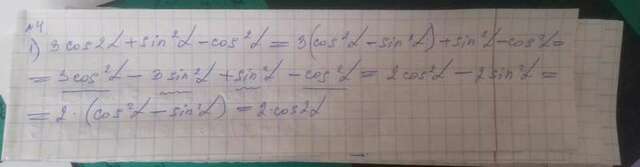 №4
1) 3cos2α + sin²α - cos²α = 3(cos²α - sin²α) + sin²α - cos²α =
= 3cos²α - 3sin²α + sin²α - cos²α = 2cos²α - 2sin²α =
= 2·(cos²α - sin²α) = 2·cos2α